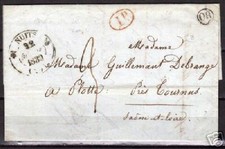 NUITS
22
1839
1D
OR
Madame
Madame Guillemant Delrange
a Plotte Près Tournus
Saône-et-Loire